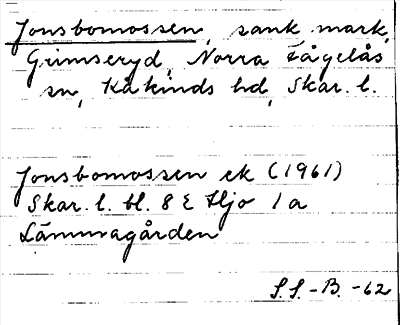 Jonsbomossen, sank mark,
Grimseryd, Norra Fågelås
sn, Kåkinds hd, Skar. l.
Jonsbomossen ek (1961)
Skar. l. bl. 8 E Hjo 1 a
Lämmagården
S.S.-B. -62